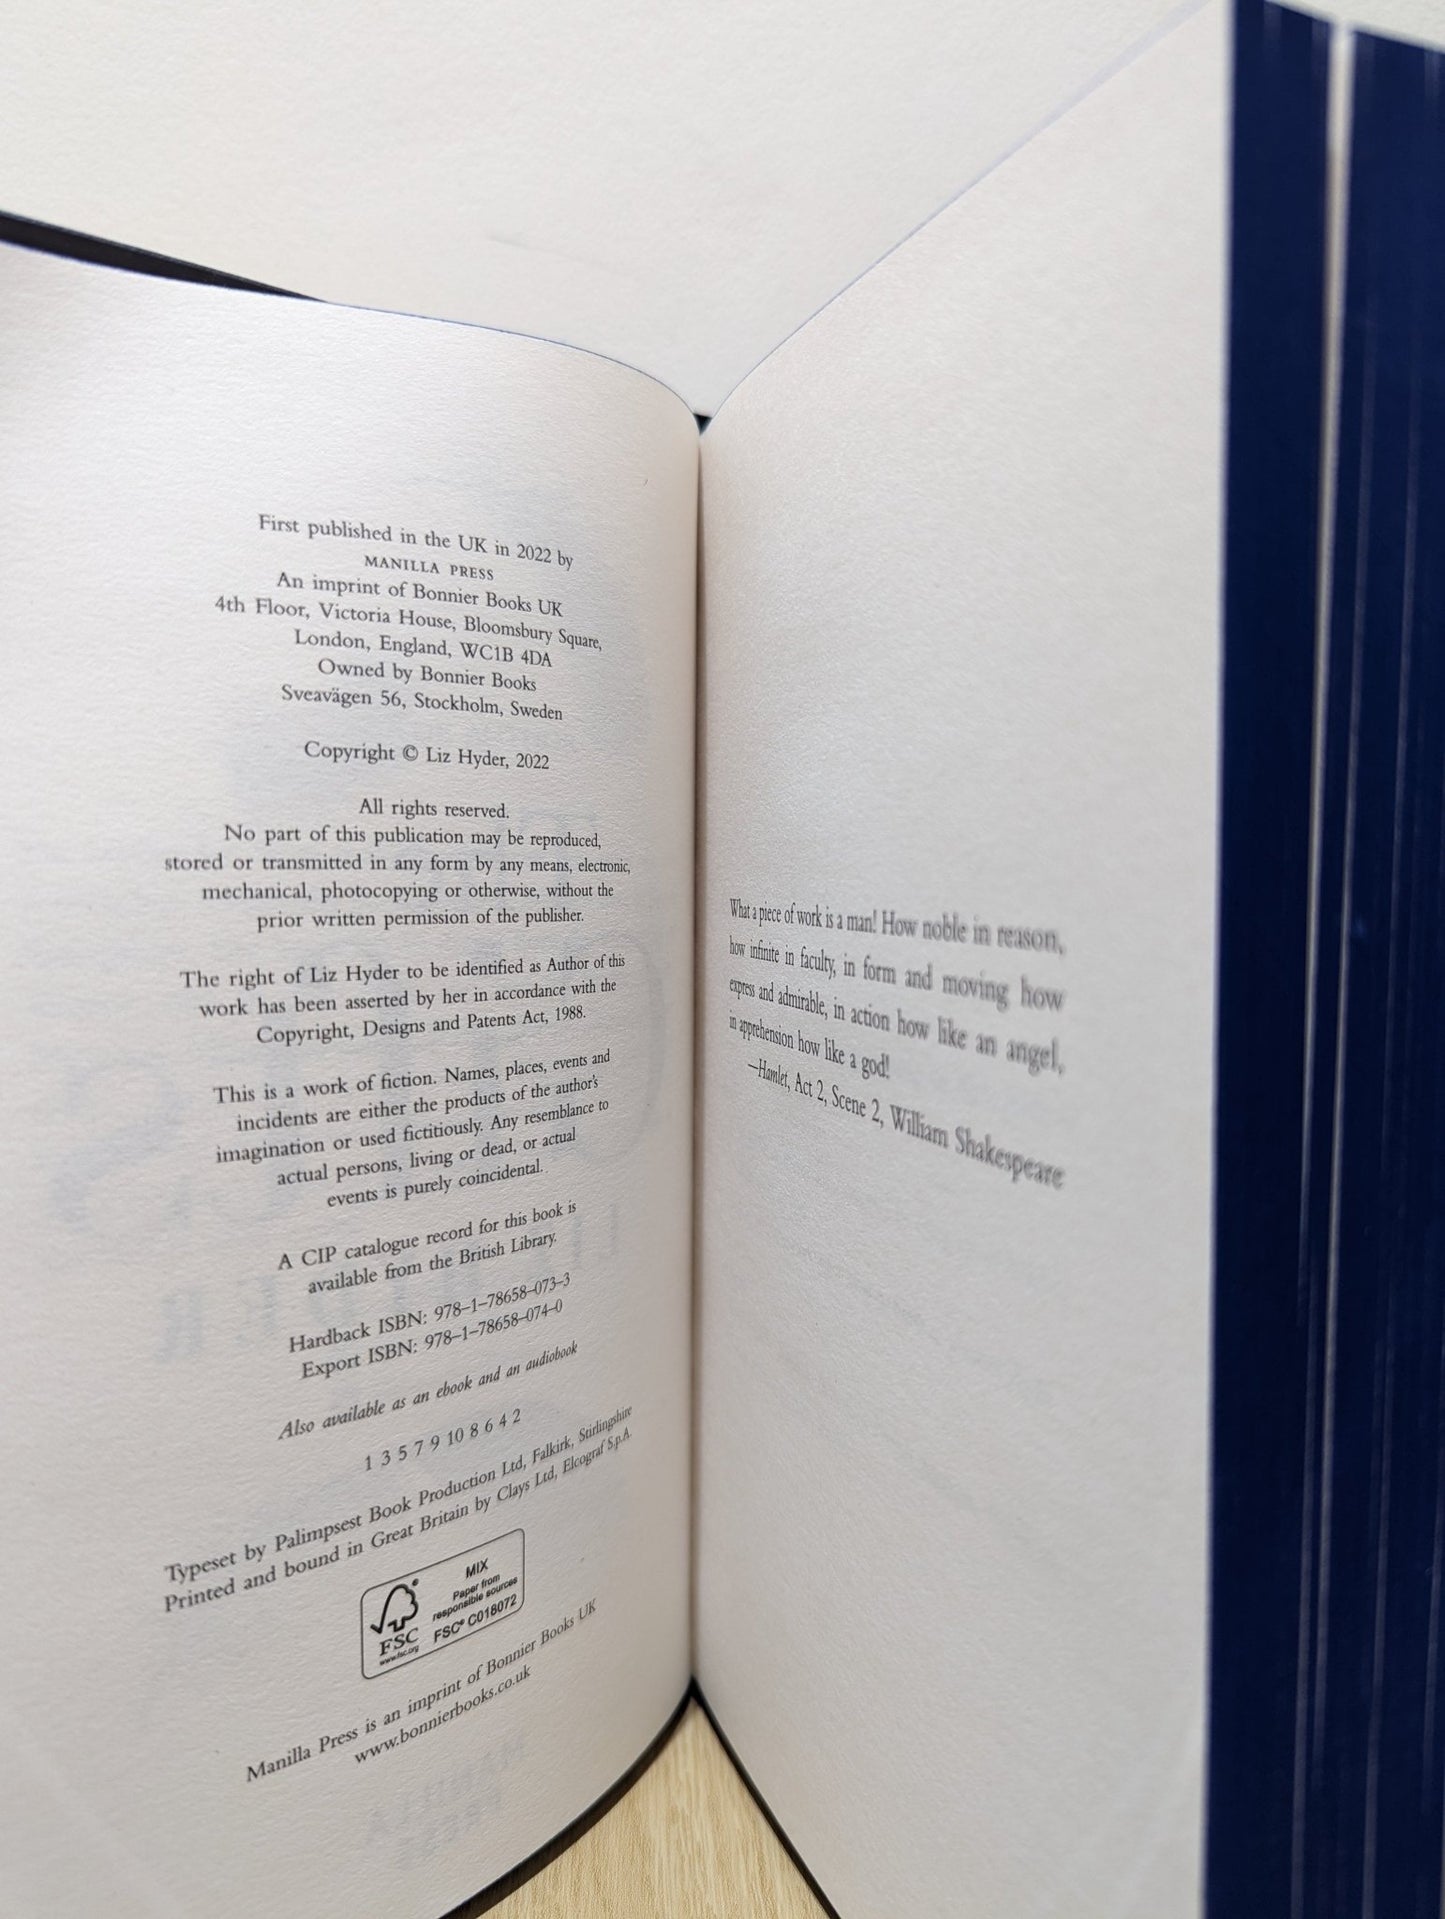 First published in the UK in 2022 by
MANILLA PRESS
An imprint of Bonnier Books UK
4th Floor, Victoria House, Bloomsbury Square,
London, England, WC1B 4DA
Owned by Bonnier Books
Sveavägen 56, Stockholm, Sweden
Copyright © Liz Hyder, 2022
All rights reserved.
No part of this publication may be reproduced,
stored or transmitted in any form by any means, electronic,
mechanical, photocopying or otherwise, without the
prior written permission of the publisher.
The right of Liz Hyder to be identified as Author of this
work has been asserted by her in accordance with the
Copyright, Designs and Patents Act, 1988.
This is a work of fiction. Names, places, events and
incidents are either the products of the author's
imagination or used fictitiously. Any resemblance to
actual persons, living or dead, or actual
events is purely coincidental.
A CIP catalogue record for this book is
available from the British Library.
Hardback ISBN: 978–1–78658–073–3
Export ISBN: 978–1–78658–074–0
Also available as an ebook and an audiobook
1 3 5 7 9 10 8 6 4 2
Typeset by Palimpsest Book Production Ltd, Falkirk, Stirlingshire
Printed and bound in Great Britain by Clays Ltd, Elcograf S.p.A.
MIX
Paper from
responsible sources
FSC® C018072
FSC
www.fsc.org
Manilla Press is an imprint of Bonnier Books UK
www.bonnierbooks.co.uk
What a piece of work is a man! How noble in reason,
how infinite in faculty, in form and moving how
express and admirable, in action how like an angel,
in apprehension how like a god!
—Hamlet, Act 2, Scene 2, William Shakespeare